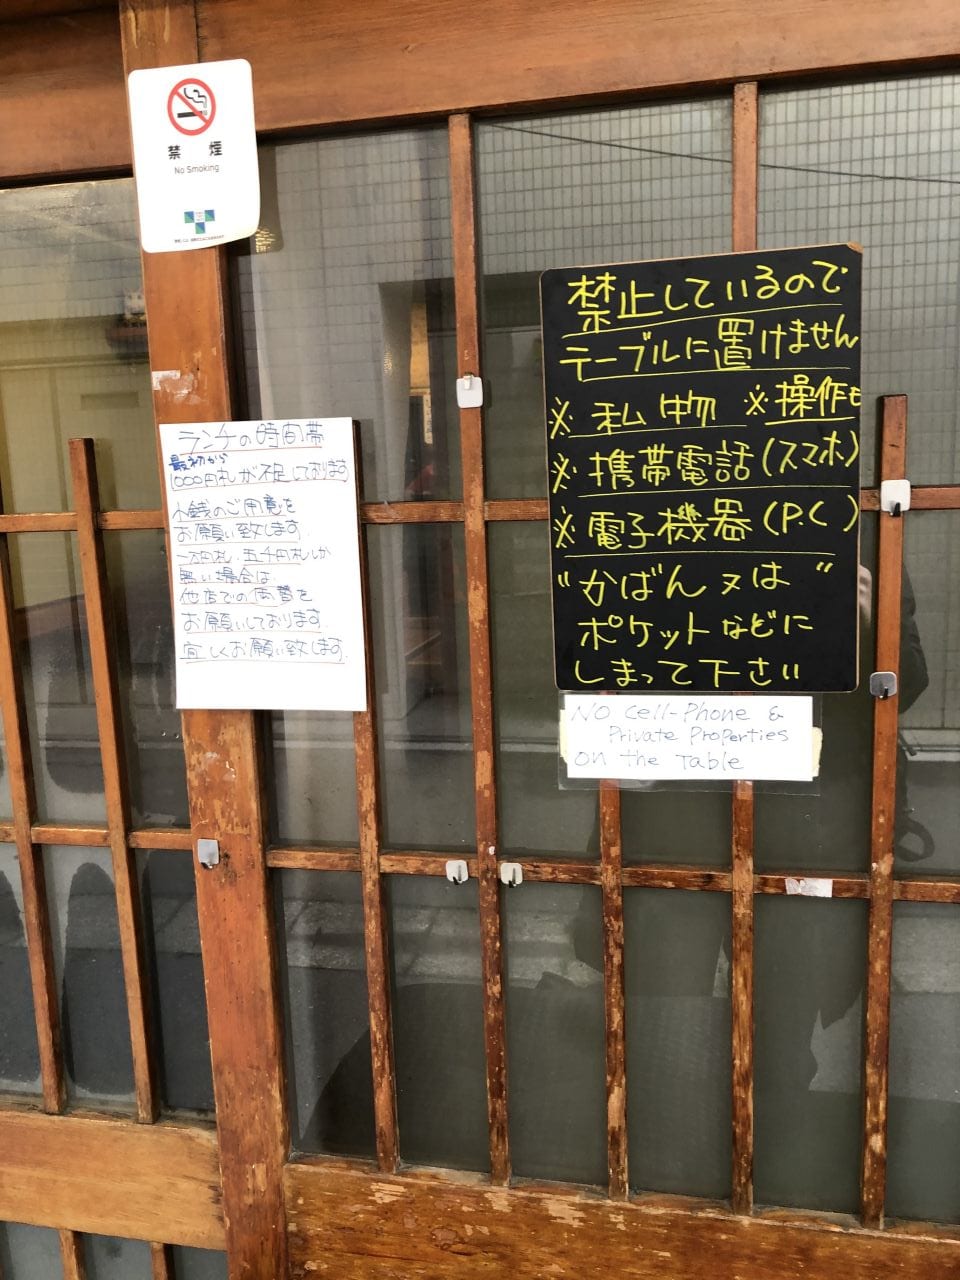 禁煙
No Smoking
ランチの時間帯
最初から
1000円札が不足しております
小銭のご用意を
お願い致します。
一万円札、五千円札しか
無い場合は
他店での両替を
お願いしております。
宜しくお願い致します。
禁止しているので
テーブルに置けません
※私物 ※操作も
※携帯電話(スマホ)
※電子機器(P.C)
"かばん又は"
ポケットなどに
しまって下さい
NO Cell-Phone &
Private Properties
on the Table